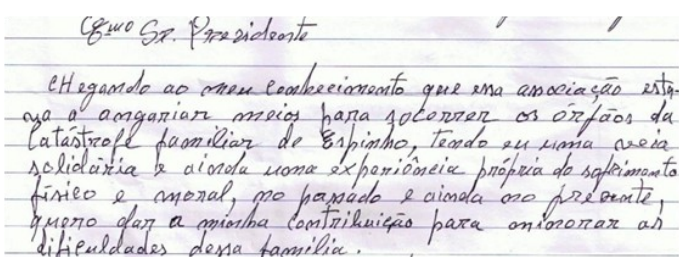 Exmo Sr. Presidente
CHegando ao meu conhecimento que essa associação esta-
va a angariar meios para socorrer os órfãos da
Catástrofe familiar de Espinho, Tendo eu uma veia
solidária e ainda uma experiência própria do sofrimento
físico e moral, no passado e ainda no presente,
quero dar a minha contribuição para minorar as
dificuldades dessa família.